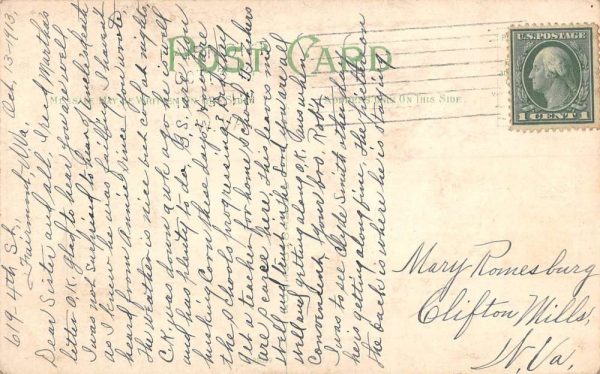 POST CARD
MESSAGE MAY BE WRITTEN ON THIS SIDE
ADDRESS ONLY ON THIS SIDE.
U.S. POSTAGE
1 CENT 1
619-4th St., Oct, 13-1913,
Fairmont, W.Va.
Dear Sister and all, I read Martha's
letter O.K. glad to hear you are well
I was not surprised to hear of
as I knew he was failing. I haven't
heard from Annie since you wrote
The weather is nice but cool nights.
C.K. was down a wk ago he is well
and has plenty to do. B.S. is
husking Corn these days.
the schools progressing?
get a teacher for home school. Teachers
are scarce here this
well and
well and getting along O.K. Am
convenient. Your bro. Robt.
I was to see Clyde Smith other day
he is getting along fine, the
the back is where he is staying.
Mary Romesburg
Clifton Mills,
W.Va.